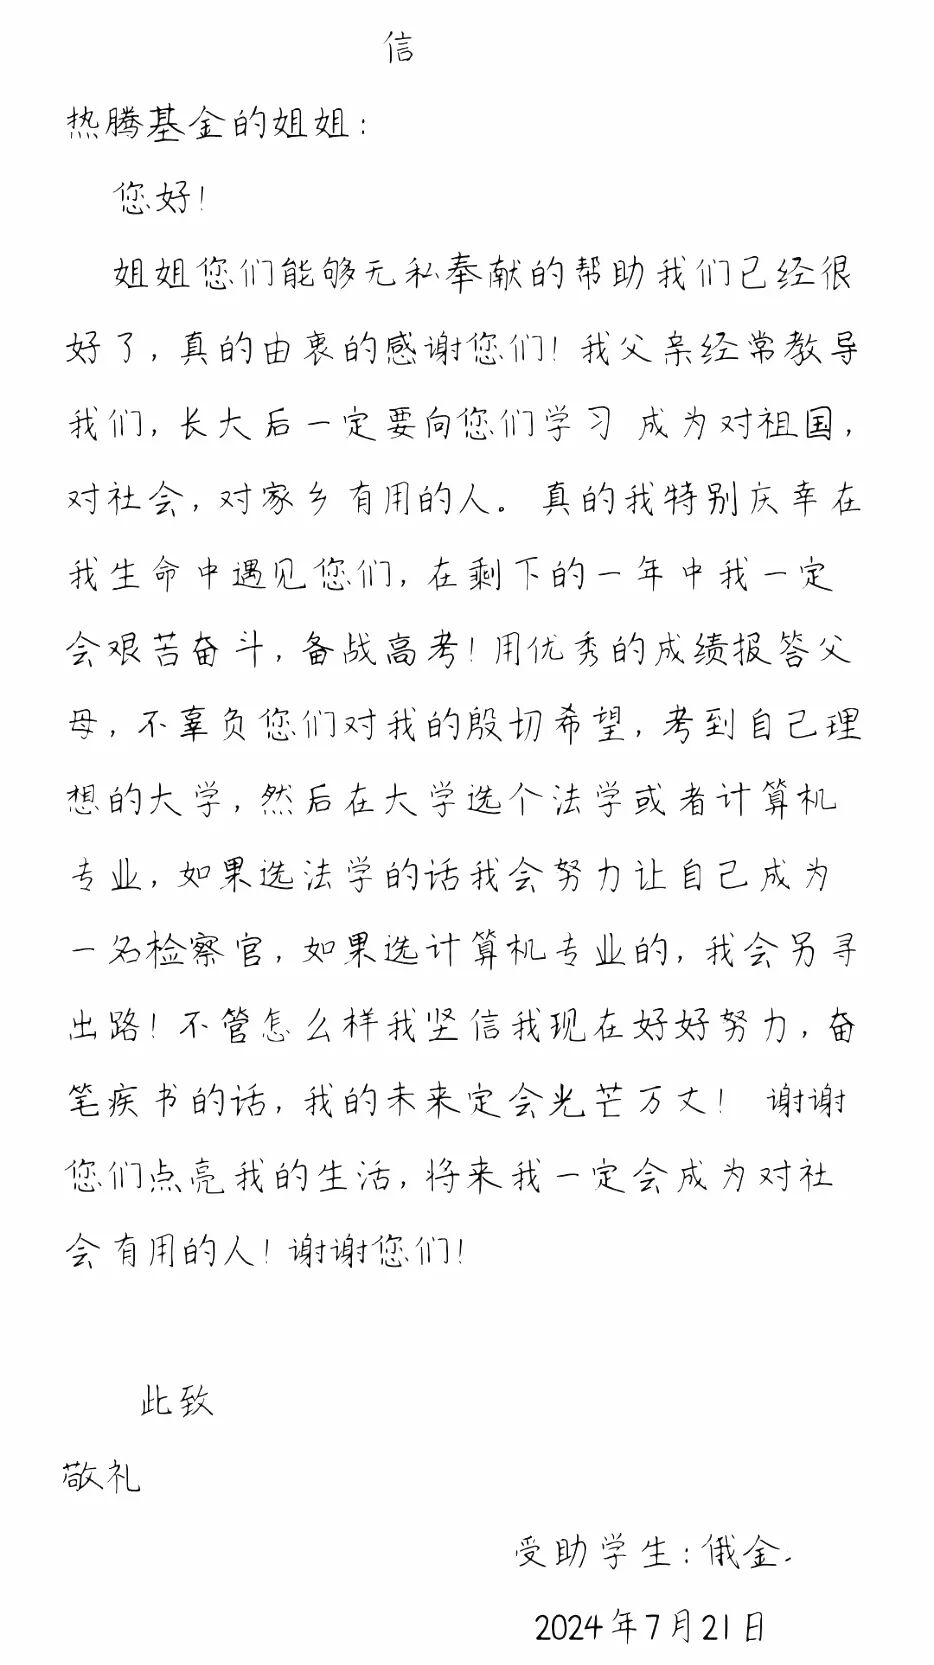 信
热腾基金的姐姐：
您好！
姐姐您们能够无私奉献的帮助我们已经很
好了，真的由衷的感谢您们！我父亲经常教导
我们，长大后一定要向您们学习 成为对祖国，
对社会，对家乡有用的人。真的我特别庆幸在
我生命中遇见您们，在剩下的一年中我一定
会艰苦奋斗，备战高考！用优秀的成绩报答父
母，不辜负您们对我的殷切希望，考到自己理
想的大学，然后在大学选个法学或者计算机
专业，如果选法学的话我会努力让自己成为
一名检察官，如果选计算机专业的，我会另寻
出路！不管怎么样我坚信我现在好好努力，奋
笔疾书的话，我的未来定会光芒万丈！ 谢谢
您们点亮我的生活，将来我一定会成为对社
会有用的人！谢谢您们！
此致
敬礼
受助学生：俄金.
2024年7月21日